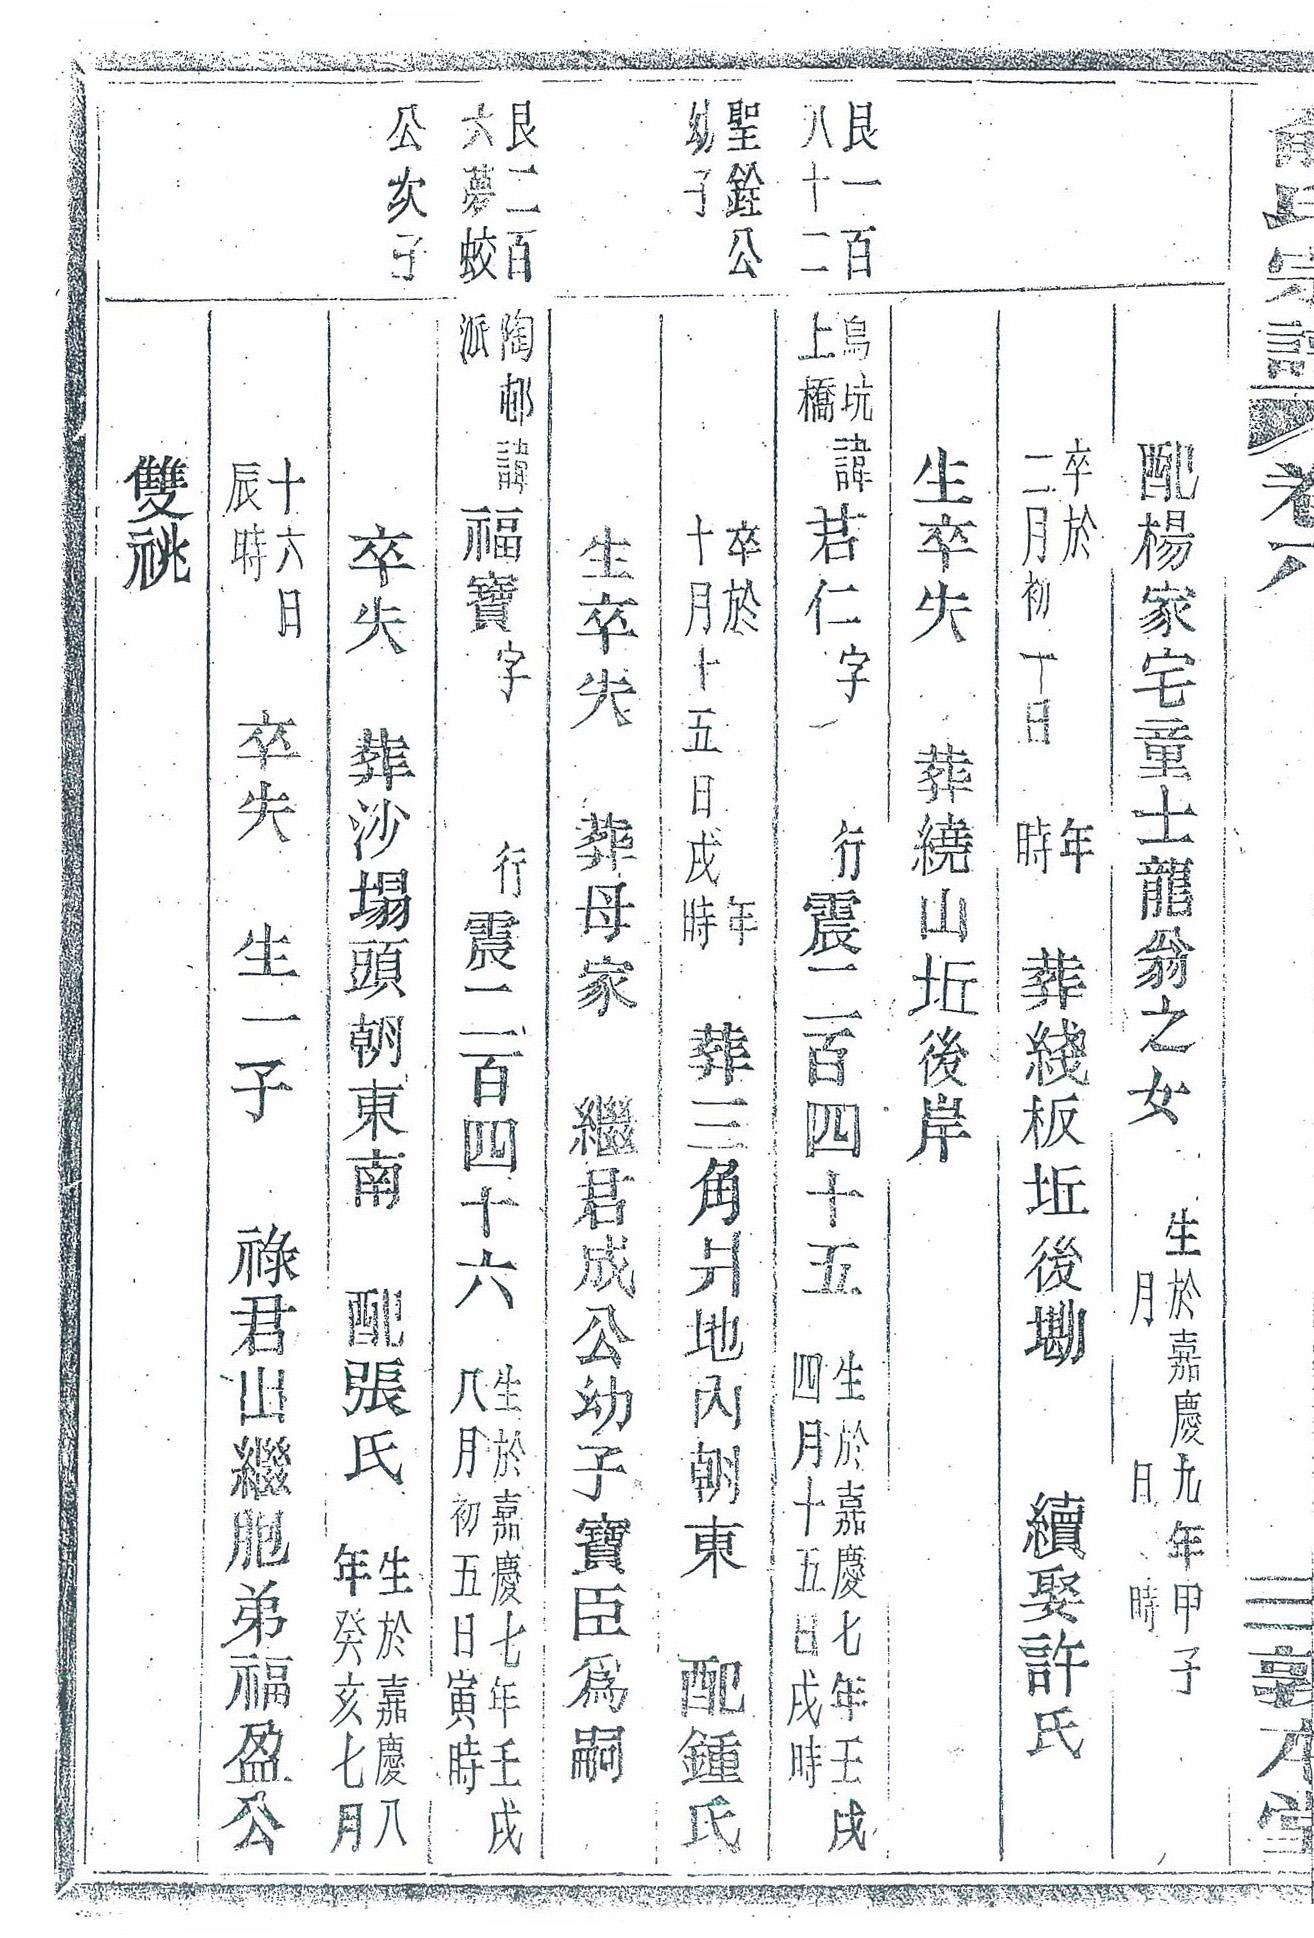 氏宗譜 卷八 三 敦本堂
配楊家宅童士龍翁之女 生於嘉慶九年甲子 月 日 時
卒於 年 二月初十日 時 葬綫板坵後墈 續娶許氏
生卒失 葬繞山坵後岸
艮一百八十二 烏坑上橋 諱君仁 字 行震二百四十五 生於嘉慶七年壬戌四月十五日戌時
聖銓公幼子 卒於 年 十月十五日戌時 葬三角爿地內朝東 配鍾氏
生卒失 葬母家 繼君成公幼子寶臣爲嗣
艮二百六夢蛟 陶邨派 諱福寶 字 行震二百四十六 生於嘉慶七年壬戌八月初五日寅時
公次子 卒失 葬沙塌頭朝東南 配張氏 生於嘉慶八年癸亥七月
十六日辰時 卒失 生一子 祿君出繼胞弟福盈公
雙祧